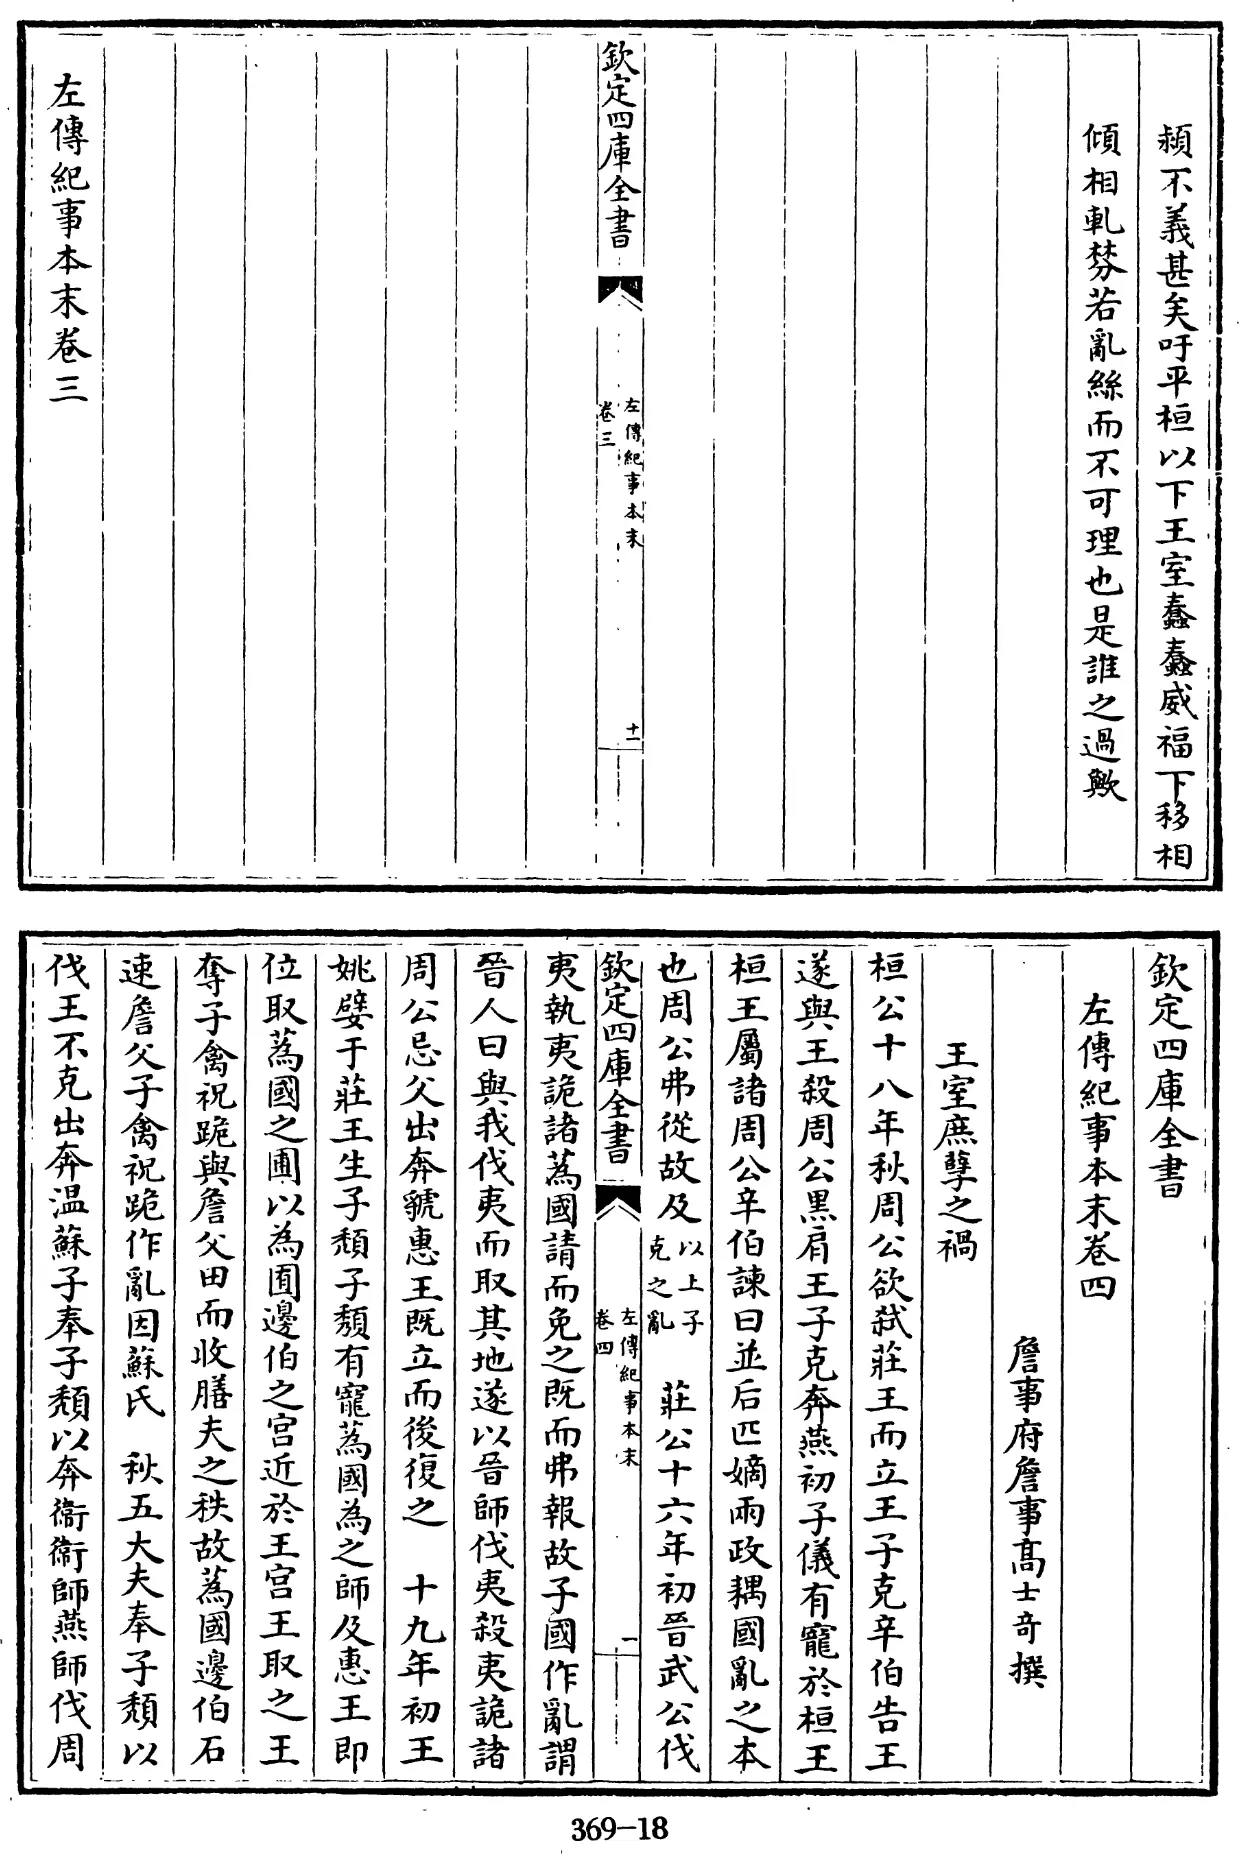 頹不義甚矣吁平桓以下王室蠢蠢威福下移相
傾相軋棼若亂絲而不可理也是誰之過歟
欽定四庫全書
左傳紀事本末
卷三
十一
左傳紀事本末卷三
欽定四庫全書
左傳紀事本末卷四
詹事府詹事高士奇撰
王室庶孽之禍
桓公十八年秋周公欲弑莊王而立王子克辛伯告王
遂與王殺周公黑肩王子克奔燕初子儀有寵於桓王
桓王屬諸周公辛伯諫曰並后匹嫡兩政耦國亂之本
也周公弗從故及以上子克之亂 莊公十六年初晉武公伐
欽定四庫全書
左傳紀事本末
卷四
一
夷執夷詭諸蒍國請而免之既而弗報故子國作亂謂
晉人曰與我伐夷而取其地遂以晉師伐夷殺夷詭諸
周公忌父出奔虢惠王既立而後復之 十九年初王
姚嬖于莊王生子頹子頹有寵蒍國為之師及惠王即
位取蒍國之圃以為囿邊伯之宮近於王宮王取之王
奪子禽祝跪與詹父田而收膳夫之秩故蒍國邊伯石
速詹父子禽祝跪作亂因蘇氏 秋五大夫奉子頹以
伐王不克出奔温蘇子奉子頹以奔衞衞師燕師伐周
369-18